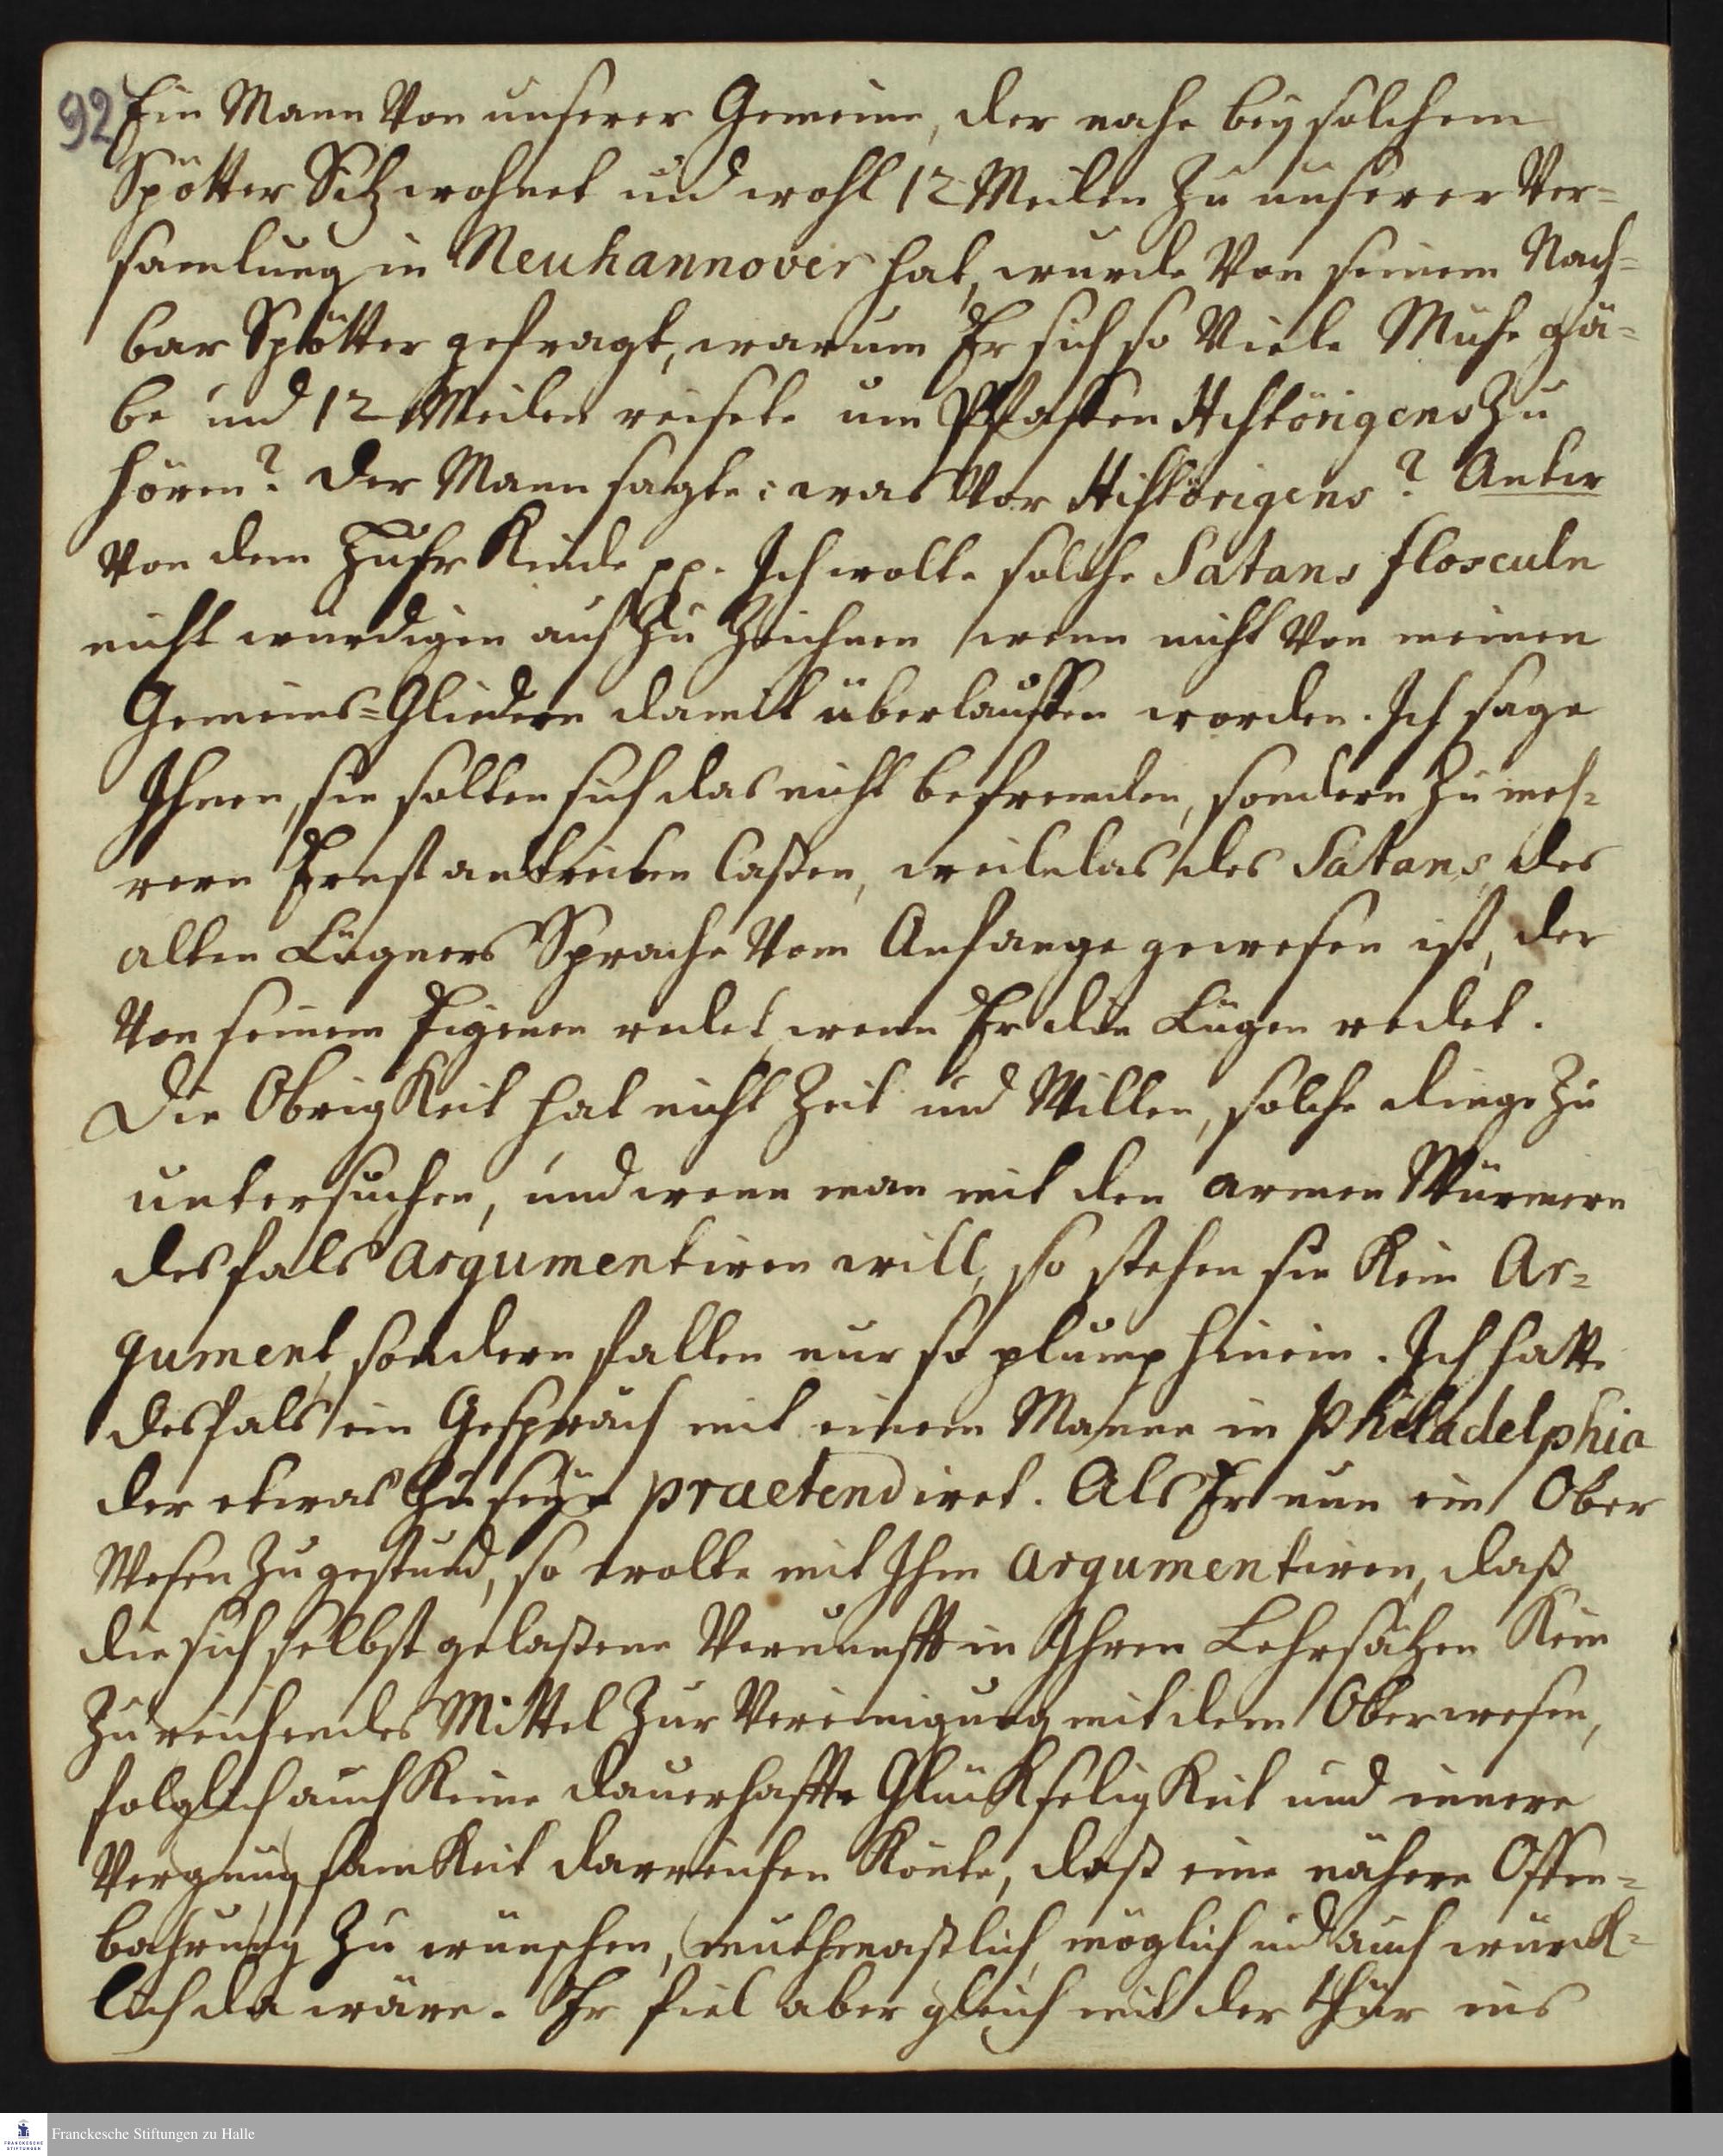 92
Ein Mann Von unserer Gemeine, der nahe bey solchem
Spötter Sitz wohnet und wohl 12 Meilen Zu unserer Ver=
samlung in Neuhannover hat, wurde Von seinem Nach=
bar Spötter gefragt, warum Er sich so Viele Mühe gä=
be und 12 Meilen reisete um Pfaffen Histörigens Zu
hören? der Mann sagte: was Vor Histörigens? Antw
Von dem Kinde pp. Ich wolte solche Satans flosculn
nicht würdigen auf Zu Zeichnen wenn nicht Von meinen
Gemeins=Gliedern damit überlauffen worden. Ich sage
Ihnen, sie solten sich das nicht befremden, sondern Zu meh=
rern Ernst antreiben laßen, weil das des Satans, des
alten Lügners Sprache Vom Anfange gewesen ist, der
Von seinem Eigenen redet wenn Er die Lügen redet.
Die ObrigKeit hat nicht Zeit und Willen, solche dinge Zu
untersuchen, und wenn man mit den armen Würmern
desfals argumentiren will, so stehen sie Kein Ar=
gument, sondern fallen nur so plump hinein. Ich hatte
desfals ein Gespräch mit einem Manne in Philadelphia
der etwas Zu seyn praetendiret. Als Er nun ein Ober
Wesen Zugestund, so wolte mit Ihm argumentiren, daß
die sich selbst gelaßene Vernunfft in Ihren Lehrsätzen Kein
Zureichendes Mittel Zur Vereinigung mit dem Oberwesen,
folglich auch Keine dauerhaffte GlückseligKeit und innere
VergnügsamKeit darreichen Könte, daß eine nähere Offen=
bahrung Zu wünschen, muthmaßlich, möglich und auch würck=
lich da wäre. Er fiel aber gleich mit der thür ins
Franckesche Stiftungen zu Halle